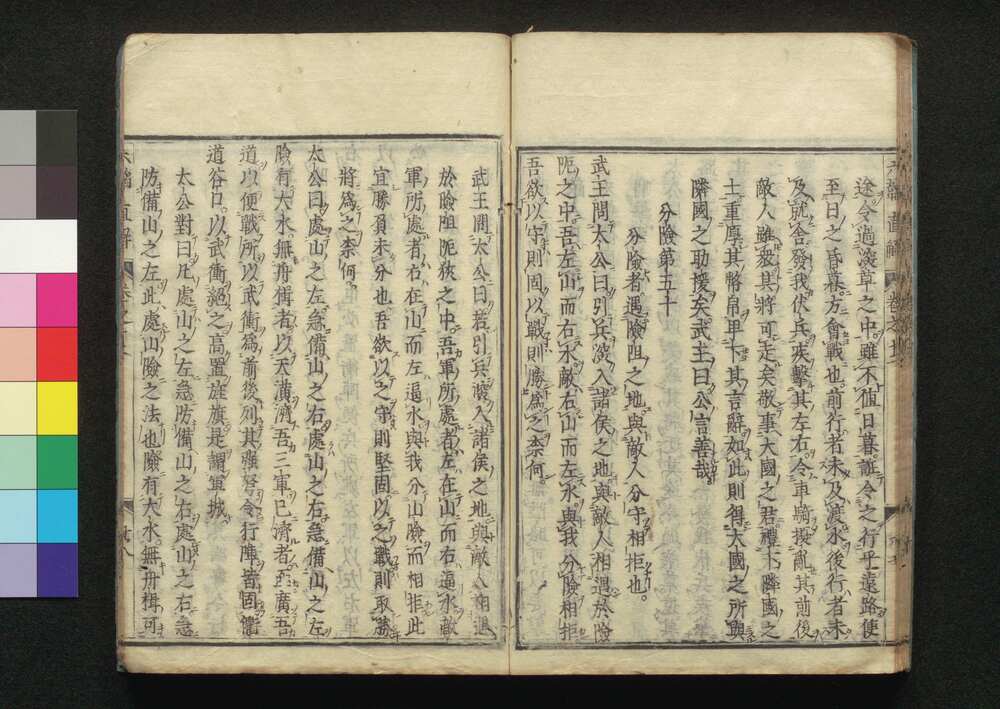 途令過深草之中雖不值日暮誑令之行乎遠路使
至日之昏暮方會戰也前行者未及渡水後行者未
及就舍發我伏兵疾擊其左右令車騎擾亂其前後
敵人雖衆其將可走矣敬事大國之君禮下隣國之
士重厚其幣帛卑下其言辭如此則得大國之所與
隣國之助援矣武王曰公言善哉
分險第五十
分險者遇險阻之地與敵人分守相拒也
武王問太公曰引兵深入諸侯之地與敵人相遇於險
阨之中吾左山而右水敵右山而左水與我分險相拒
吾欲以守則固以戰則勝為之奈何
武王問太公曰若引兵深入諸侯之地與敵人相遇
於險阻阨狹之中吾軍所處者左在山而右逼水敵
軍所處者右在山而左逼水與我分山險而相拒此
宜勝負未分也吾欲以之守則堅固以之戰則取勝
將為之奈何
太公曰處山之左急備山之右處山之右急備山之左
險有大水無舟楫者以天潢濟吾三軍已濟者亟廣吾
道以便戰所以武衝為前後列其强弩令行陣皆固衢
道谷口以武衝絕之高置旌旗是謂軍城
太公對曰凡處山之左急防備山之右處山之右急
防備山之左此處山險之法也險有大水無舟楫可